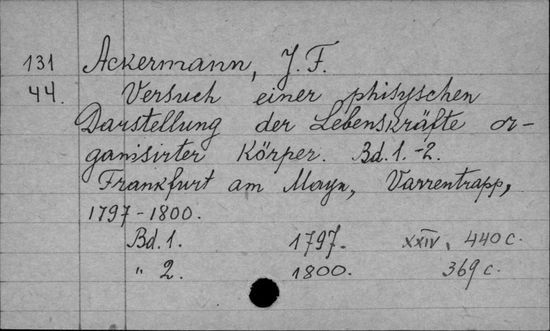 131 Ackermann, J. F.
44. Versuch einer phisyschen
Darstellung der Lebenskräfte or-
ganisirter Körper. Bd. 1.-2.
Frankfurt am Mayn, Varrentrapp,
1797-1800.
Bd. 1. 1797. XXIV, 440 c.
" 2. 1800. 369 c.